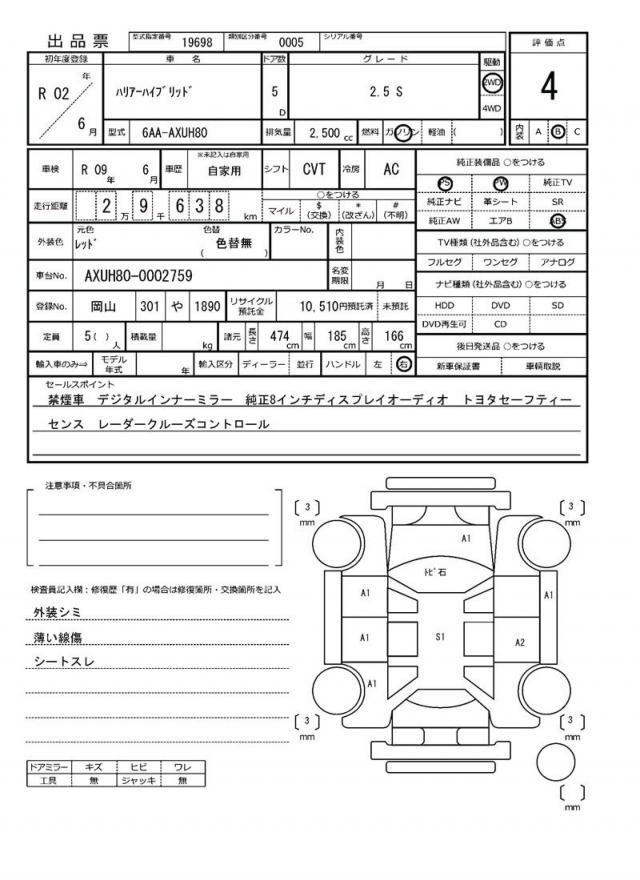 出品票
型式指定番号 19698 類別区分番号 0005 シリアル番号
評価点
4
内装 A B C
初年度登録 車名 ドア数 グレード 駆動
R 02 年 6 月
ﾊﾘｱｰﾊｲﾌﾞﾘｯﾄﾞ 5 D 2.5 S 2WD
4WD
型式 6AA-AXUH80 排気量 2,500 cc 燃料 ガソリン 軽油 ( )
車検 R 09 年 6 月 車歴 ※未記入は自家用 自家用 シフト CVT 冷房 AC
走行距離 2 万 9 千 6 3 8 km
○をつける
マイル $ (交換) * (改ざん) # (不明)
外装色 元色 ﾚｯﾄﾞ 色替 ( 色替無 ) カラーNo. 内装色
車台No. AXUH80-0002759 名変期限 月 日
登録No. 岡山 301 や 1890 リサイクル預託金 10,510円預託済 未預託
定員 5( ) 人 積載量 kg 諸元 長さ 474 cm 幅 185 cm 高さ 166 cm
輸入車のみ⇒ モデル年式 年 輸入区分 ディーラー 並行 ハンドル 左 右
純正装備品 ○をつける
PS PW 純正TV
純正ナビ 革シート SR
純正AW エアB ABS
TV種類(社外品含む) ○をつける
フルセグ ワンセグ アナログ
ナビ種類(社外品含む) ○をつける
HDD DVD SD
DVD再生可 CD
後日発送品 ○をつける
新車保証書 車輌取説
セールスポイント
禁煙車 デジタルインナーミラー 純正8インチディスプレイオーディオ トヨタセーフティー
センス レーダークルーズコントロール
注意事項・不具合箇所
検査員記入欄：修復歴「有」の場合は修復箇所・交換箇所を記入
外装シミ
薄い線傷
シートスレ
ドアミラー キズ ヒビ ワレ
工具 無 ジャッキ 無
[ 3 ] mm
[ 3 ] mm
A1
ﾄﾋﾞ石
A1
A1
A1
S1
A2
A1
[ 3 ] mm
[ 3 ] mm
[ ] mm